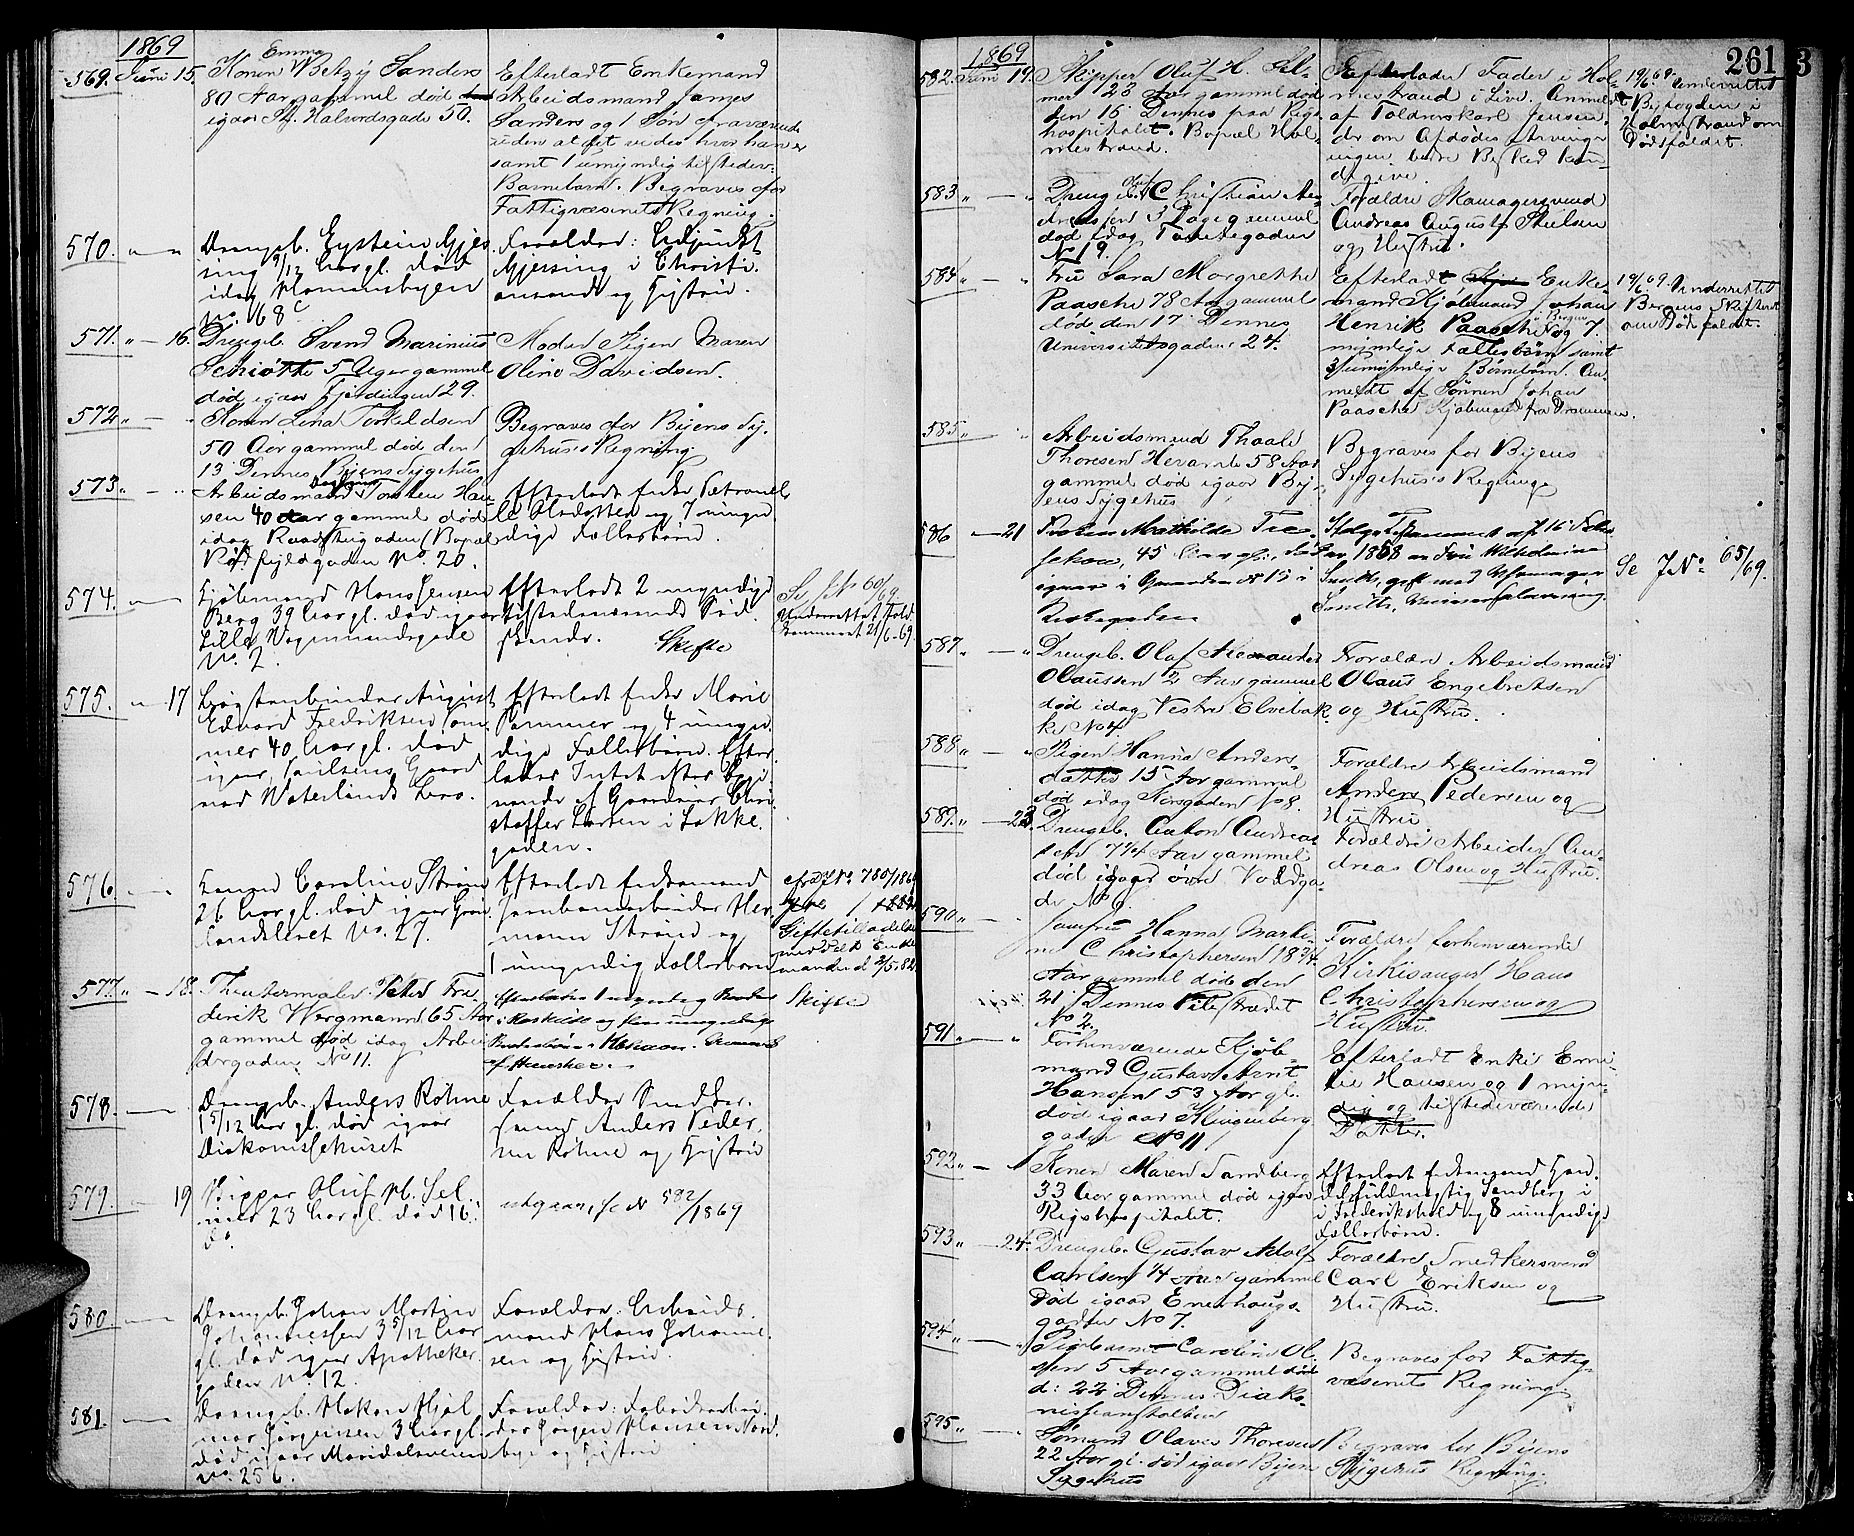 1869
569. Juni 15. Konen Emma Betzy Sanders
80 Aar gammel død
igaar St. Halvordsgade 50.
Efterladt Enkemand
Arbeidsmand James
Sanders og 1 Søn fraværende
uden at det vides hvor han er
samt 1 umyndig tilstedev.
Barnebarn. Begraves for
Fattigvæsenets Regning.
570. " — "
Drengeb. Eystein Gjes
sing 9/12 Aar gl. død
idag Homansbyen
No. 68c
Forældre: Adjunkt
Gjessing i Christi-
ansand og Hustru.
571. " — 16.
Drengeb. Svend Marinius
Schiøtte 5 Uger gammel
død igaar Fjerdingen 29.
Moder Pigen Maren
Oline Davidsen.
572 " — "
Konen Lina Torkildsen
50 Aar gammel død den
13 Dennes Byens Sygehus
Begraves for Byens Sy-
gehuses Regning
573 " — "
Arbeidsmand Torsten Han
sen 40 Aar gammel død
idag Raadhusgaden (Bopæl
Rødfyldgaden No. 20.
Efterladt Enke Petronel
le Olsdatter og 7 umyn
dige Fællesbørn.
574. " — "
Kjøbmand Hans Jensen
Berg 39 Aar gl. død igaar
Lille Vognmandsgade
No. 2.
Efterladt 2 myndige
tilstedeværende Sød-
skende.
Skifte
Se J.No 60/69.
Underrettet Told
kammeret 21/6-69.
575. " — 17
Børstenbinder August
Edvard Fredriksen Pom
mer 40 Aar gl. død
igaar, Paulsens Gaard
ved Waterlands Bro.
Efterladt Enke Marie
Pommer og 4 umyn
dige Fællesbørn. Efter
lader Intet efter Sigi
ende af Gaardeier Chri
stoffer Larsen i Lakke
gaden.
576. " — "
Konen Caroline Strøm
26 Aar gl. død igaar Grøn
landsleret No. 27.
Efterladt Enkemand
Jernbanearbeider Her
mann Strøm og
1 umyndig Fællesbarn
cfr. J.No. 780/1869
Giftetilladelse
meddelt Enke
manden d 2/5.82.
577. " — 18.
Theatermaler Peter Fre
derik Wergmann 65 Aar
gammel død idag Arbei
dergaden No 11.
Efterlader 1 myndig Broder
i Roskilde og flere umyndige
Skifte
578. " — "
Drengeb. Anders Rohne
1 5/12 Aar gl. død igaar
Diakonissehuset
Forældre Smedker-
svend Anders Peder-
sen Rohne og Hustru
579. — 19
Skipper Oluf H. Sel
mer 23 Aar gl. død 16.
d.
udgaar, se N 582/1869
580. " — "
Drengeb. Johan Martin
Johannessen 3 5/12 Aar
gl. død igaar Apotheker
gaden No. 12.
Forældre: Arbeids-
mand Hans Johannes
sen og Hustru.
581. " — "
Drengeb. Hakon Hjal
mar Jørgensen 3 Aar gl.
død igaar Maridalsveien
No. 256.
Forældre: Fabrikarbei
der Jørgen Hansen Nord
bye og Hustru
1869
261
3
582. Juni 19.
Skipper Oluf H. Sel-
mer 23 Aar gammel død
den 16 Dennes paa Rigs-
hospitalet. Bopæl Hol-
mestrand.
Efterlader Fader i Hol-
mestrand i Live. Anmeldt
af Toldoverskarl Jensen
der om Afdødes Arvinger
ingen bedre Besked kun-
de give.
19/6 69. Underrettet
Byfogden i
Holmestrand om
Dødsfaldet.
583 " — "
Drengeb. Carl Christian An-
dreassen 3 Dage gammel
død idag Toldbodgaden
No 19.
Forældre Skomagersvend
Andreas August Nielsen
og Hustru.
584 " — "
Fru Sara Margrethe
Paasche 78 Aar gammel
død den 17 Dennes
Universitetsgaden 24.
Efterladt Enke-
mand Kjøbmand Johan
Henrik Paasche i Bergen og 7
myndige Fællesbørn samt
3 umyndige Børnebørn. An-
meldt af Sønnen Johan
Paasche Kjøbmand fra Drammen.
19/6 69. Underrettet
Bergens Skifteret
om Dødsfaldet.
585 " — "
Arbeidsmand Thoale
Thoresen Hevarde 58 Aar
gammel død igaar By-
ens Sygehus
Begraves for Byens
Sygehus's Regning
586 — 21
Frøken Mathilde Tre-
schow, 45 Aar gl., død
igaar i Gaarden No 15 i
Kirkegaden
Ifølge Testament af 16 Febr
uar 1858 er Fru Wilhelmine
Smith, gift med
Smith,
Se J No. 65/69.
587. " — "
Drengeb. Olaf Alexander
Olaussen 2 Aar gammel
død idag Vestre Elvebak-
ke No 4
Forældre Arbeidsmand
Olaus Engebretsen
og Hustru.
588 " — "
Pigen Hanna Anders-
datter 15 Aar gammel
død idag Torvgaden No 8.
Forældre Arbeidsmand
Anders Pedersen og
Hustru
589. " — 23.
Drengeb. Anton Andreas
sen 7 1/4 Aar gammel
død igaar øvre Voldga-
de No 9.
Forældre Arbeider An-
dreas Olsen og Hustru.
590 " — "
Jomfru Hanna Marti-
ne Christophersen 18 3/4
Aar gammel død den
21 Dennes Pilestrædet
No 2.
Forældre forhenværende
Kirkesanger Hans
Christophersen og
Hustru.
591 " — "
Forhenværende Kjøb-
mand Gustav Arnt
Hansen 53 Aar gl.
død igaar Klingenberg
gaden No 11
Efterladt Enke Emi-
lie Hansen og 1 myn-
dig og tilstedeværende
Datter.
592 " — "
Konen Maren Sandberg
33 Aar gammel død igaar
Rigshospitalet.
Efterladt Enkemand Han-
delsfuldmægtig Sandberg i
i Frederikshald og 8 umyndige
Fællesbørn.
593 " — 24.
Drengeb. Gustav Adolf
Carlsen 1/4 Aar gammel
død igaar Enerhaugs-
gaden No 7.
Forældre Snedkersvend
Carl Eriksen og
Hustru.
594 " — "
Pigebarn Caroline Ol-
sen 5 Aar gammel død
d: 22 Dennes Diako-
nisseanstalten
Begraves for Fattig-
væsenets Regning
595 " — "
Sømand Olaves Thoresen
22 Aar gl. død igaar Byens
Sygehus
Begraves for Byens
Sygehus Regning.